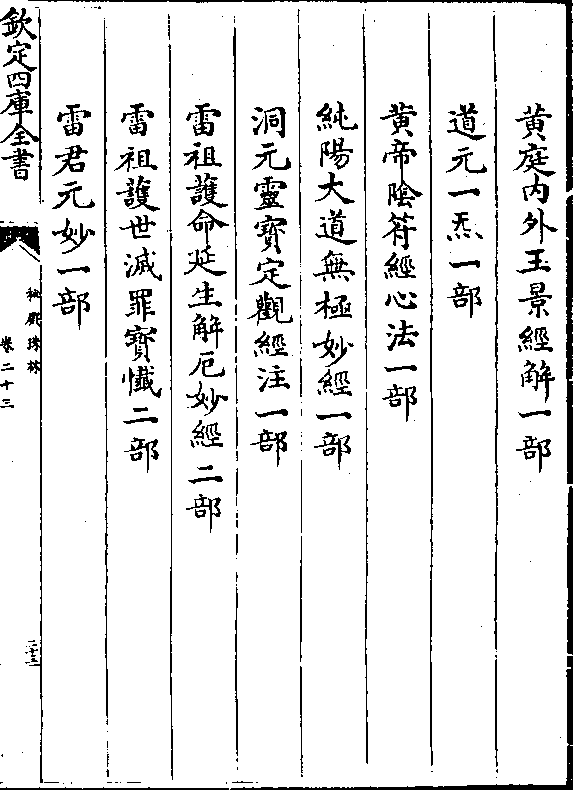 黄庭内外玉景經解一部
道元一炁一部
黄帝隂符經心法一部
純陽大道無極妙經一部
洞元靈寳定觀經注一部
雷祖護命延生解厄妙經二部
雷祖護世滅罪寳懴二部
雷君元妙一部
欽定四庫全書
秘殿珠林
卷二十三
二十三